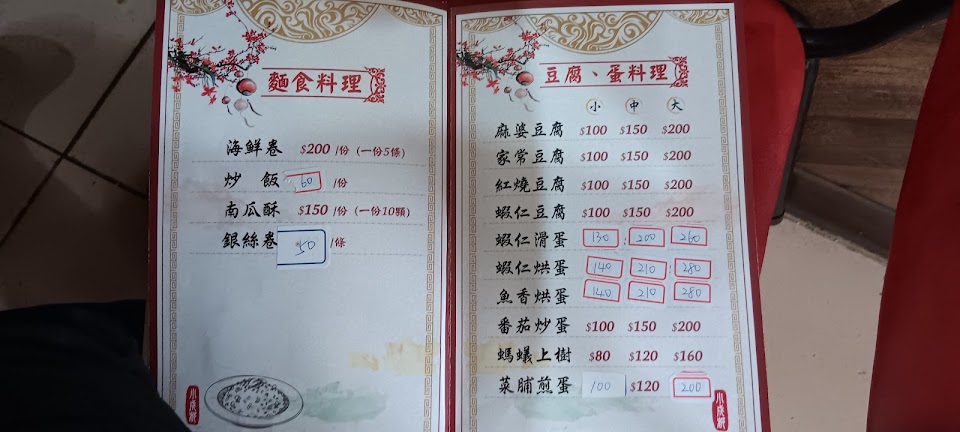 麵食料理
海鮮卷 $200 /份 (一份5條)
炒 飯 60 /份
南瓜酥 $150 /份 (一份10顆)
銀絲卷 50 /條
豆腐、蛋料理
小 中 大
麻婆豆腐 $100 $150 $200
家常豆腐 $100 $150 $200
紅燒豆腐 $100 $150 $200
蝦仁豆腐 $100 $150 $200
蝦仁滑蛋 130 200 260
蝦仁烘蛋 140 210 280
魚香烘蛋 140 210 280
番茄炒蛋 $100 $150 $200
螞蟻上樹 $80 $120 $160
菜脯煎蛋 100 $120 200